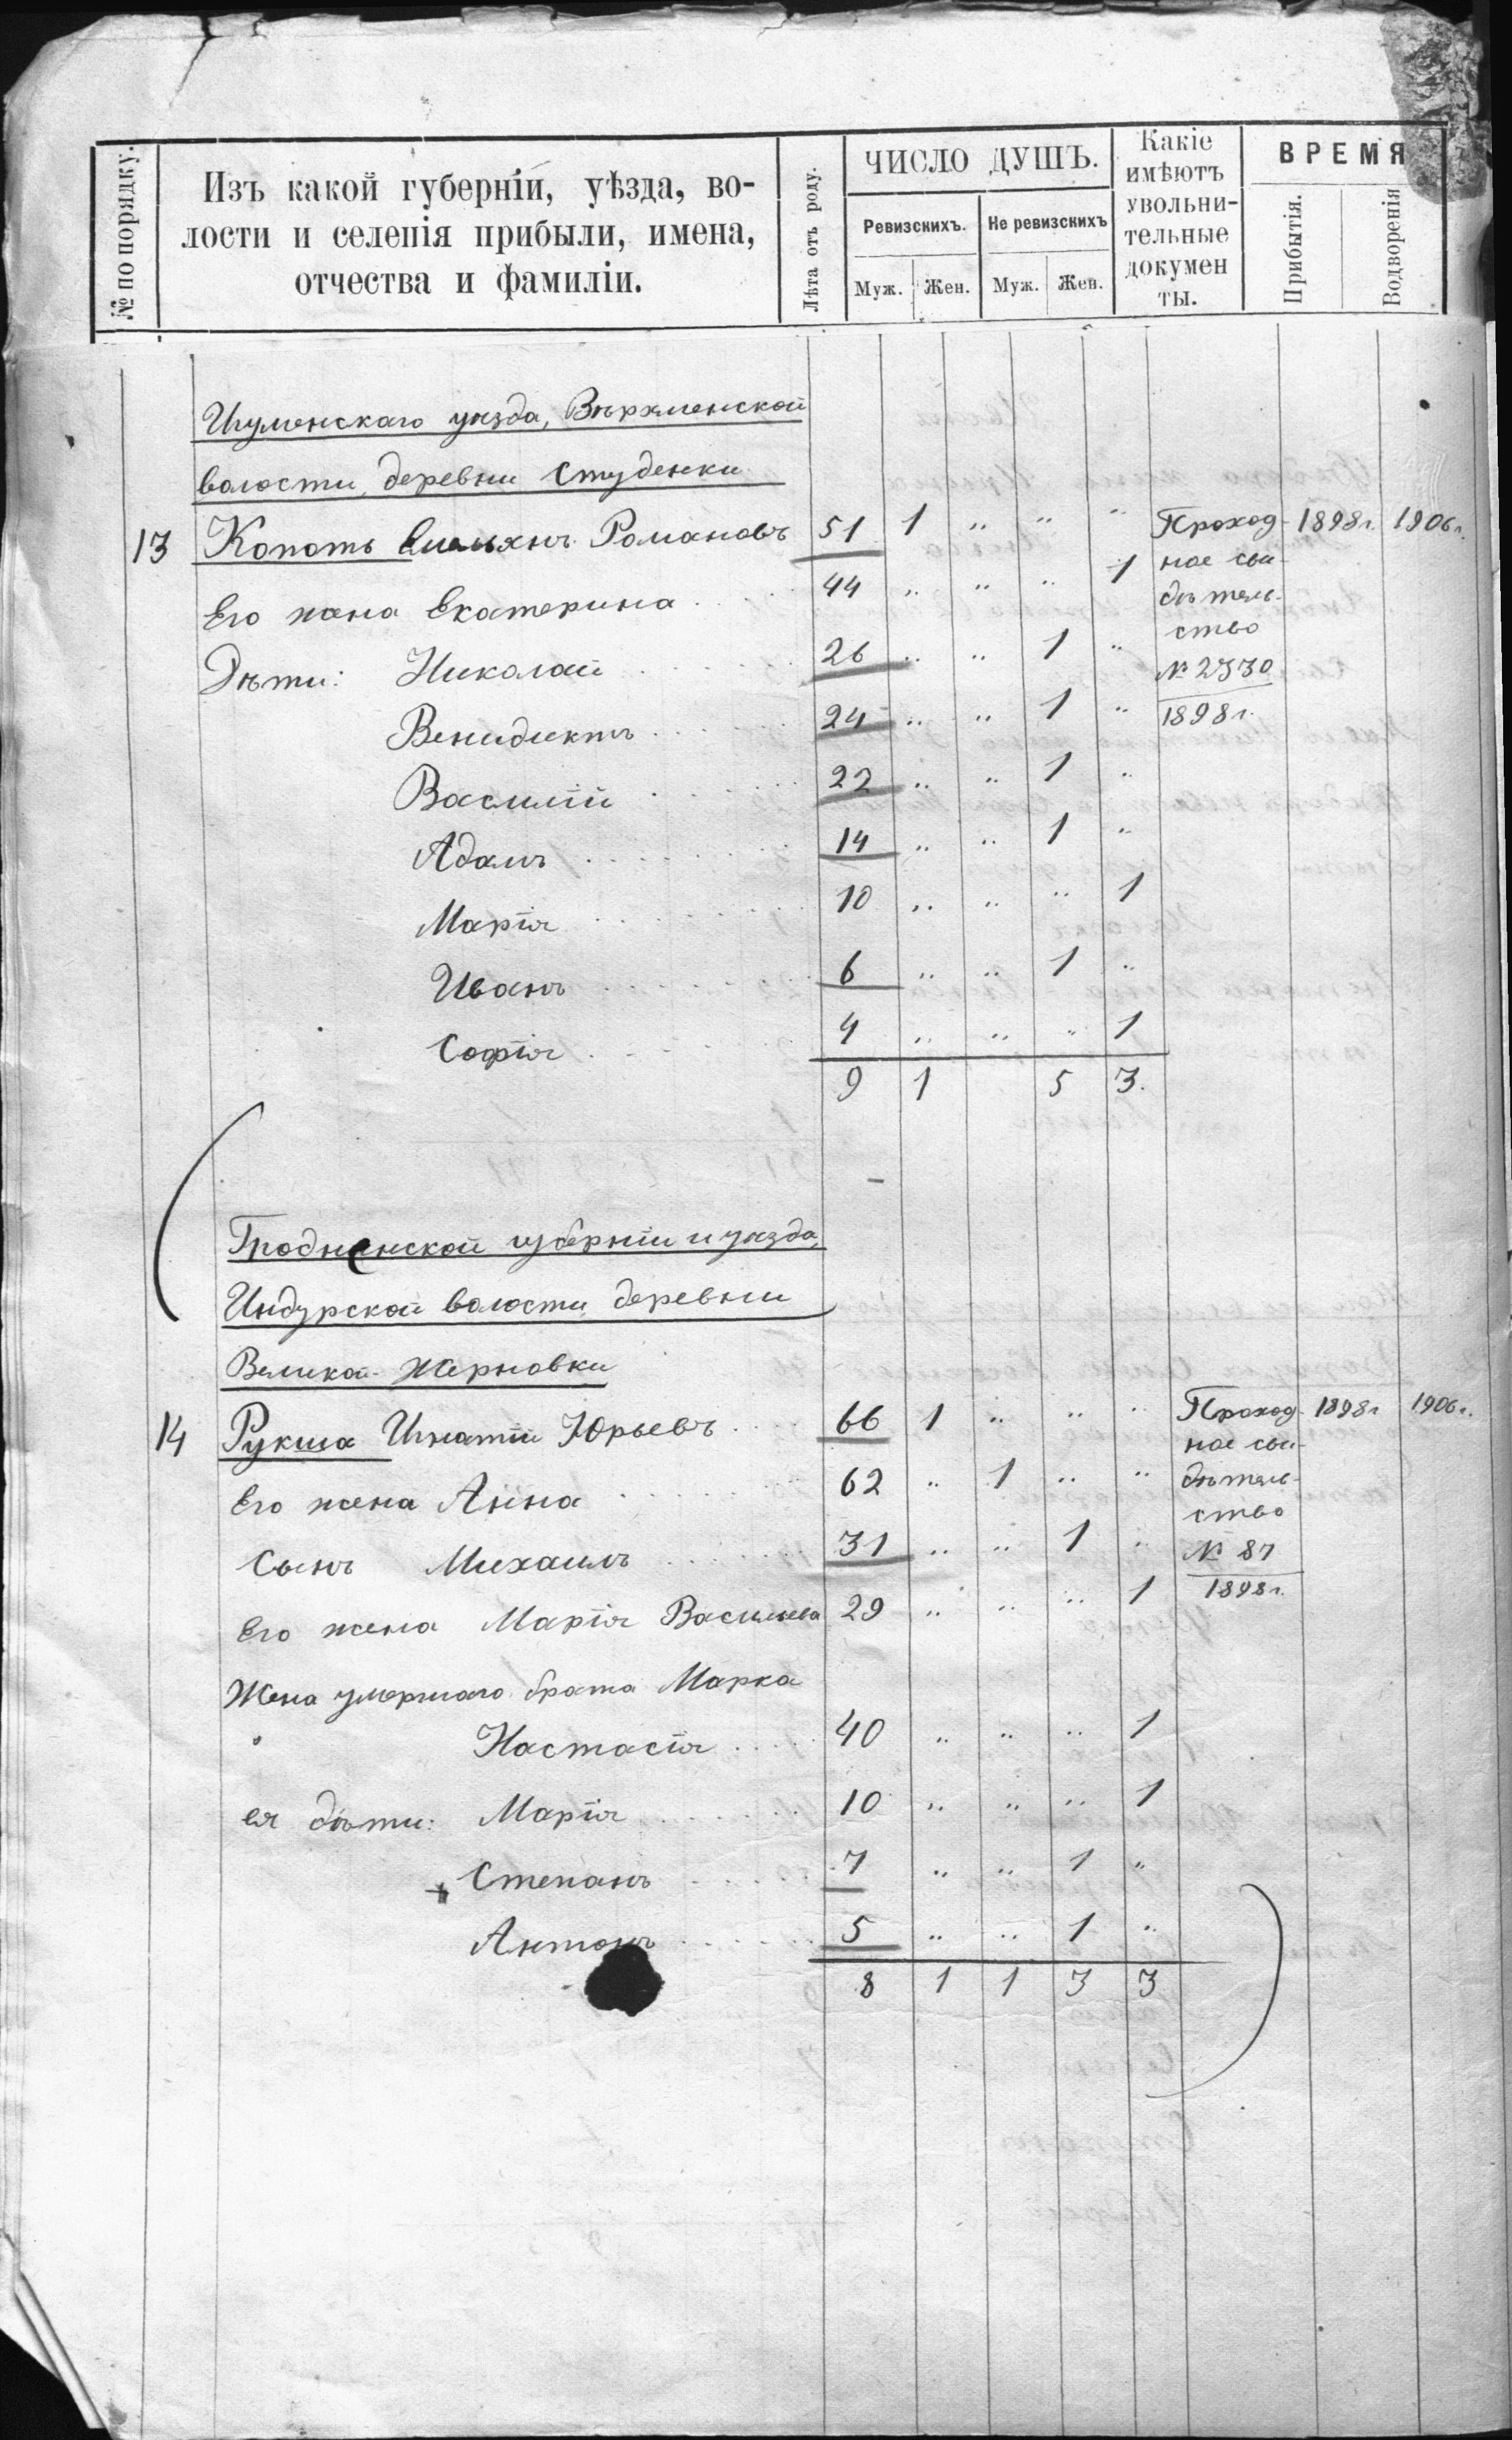 № по порядку.
Изъ какой губерніи, уѣзда, во-
лости и селенія прибыли, имена,
отчества и фамиліи.
Лѣта отъ роду.
ЧИСЛО ДУШЪ.
Ревизскихъ. Не ревизскихъ
Муж. Жен. Муж. Жен.
Какіе
имѣютъ
увольни-
тельные
докумен
ты.
ВРЕМЯ
Прибытія.
Водворенія
Игуменскаго уѣзда, Вѣрхменской
волости, деревни Студенки
13 Копоть Емельянъ Романовъ 51 1 " " " Проход- 1898 г. 1906 г.
ное сви-
Его жена Екатерина 44 " " " 1 дѣтель-
ство
Дѣти: Николай 26 " " 1 " № 2330
Венидиктъ 24 " " 1 " 1898 г.
Василій 22 " " 1 "
Адамъ 14 " " 1 "
Марія 10 " " " 1
Иванъ 6 " " 1 "
Софія 4 " " " 1
9 1 5 3.
Гродненской губерніи и уѣзда,
Индурской волости деревни
Великой-Жерновки
14 Рукша Игнатій Юрьевъ 66 1 " " " Проход- 1898 г 1906 г.
ное сви-
Его жена Анна 62 " 1 " " дѣтель-
ство
Сынъ Михаилъ 31 " " 1 " № 87
Его жена Марія Васильева 29 " " " 1 1898 г.
Жена умершаго брата Марка
Настасія 40 " " " 1
ея дѣти: Марія 10 " " " 1
Степанъ 7 " " 1 "
Антонъ 5 " " 1 "
8 1 1 3 3